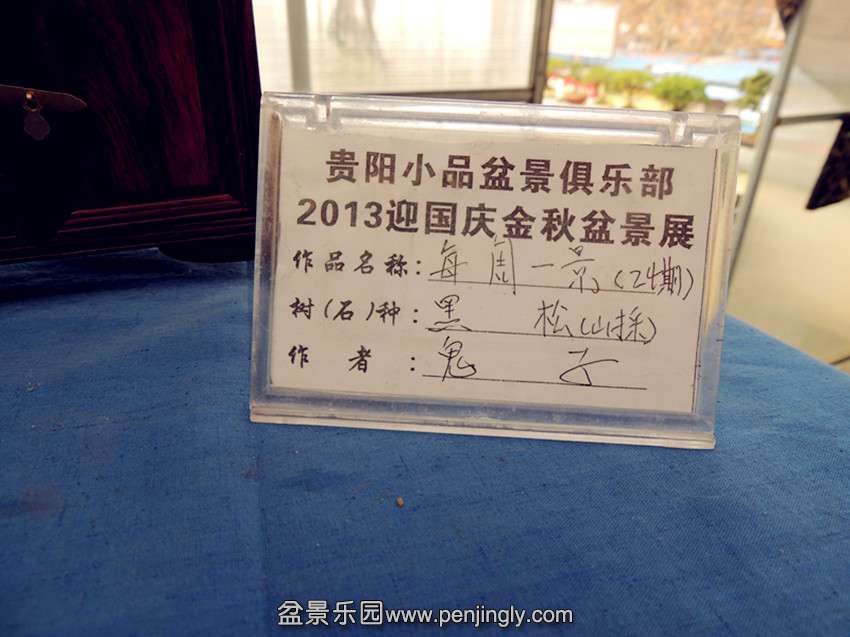 贵阳小品盆景俱乐部
2013迎国庆金秋盆景展
作品名称：每周一景(24期)
树(石)种：黑 松(山採)
作 者：鬼 子
盆景乐园www.penjingly.com